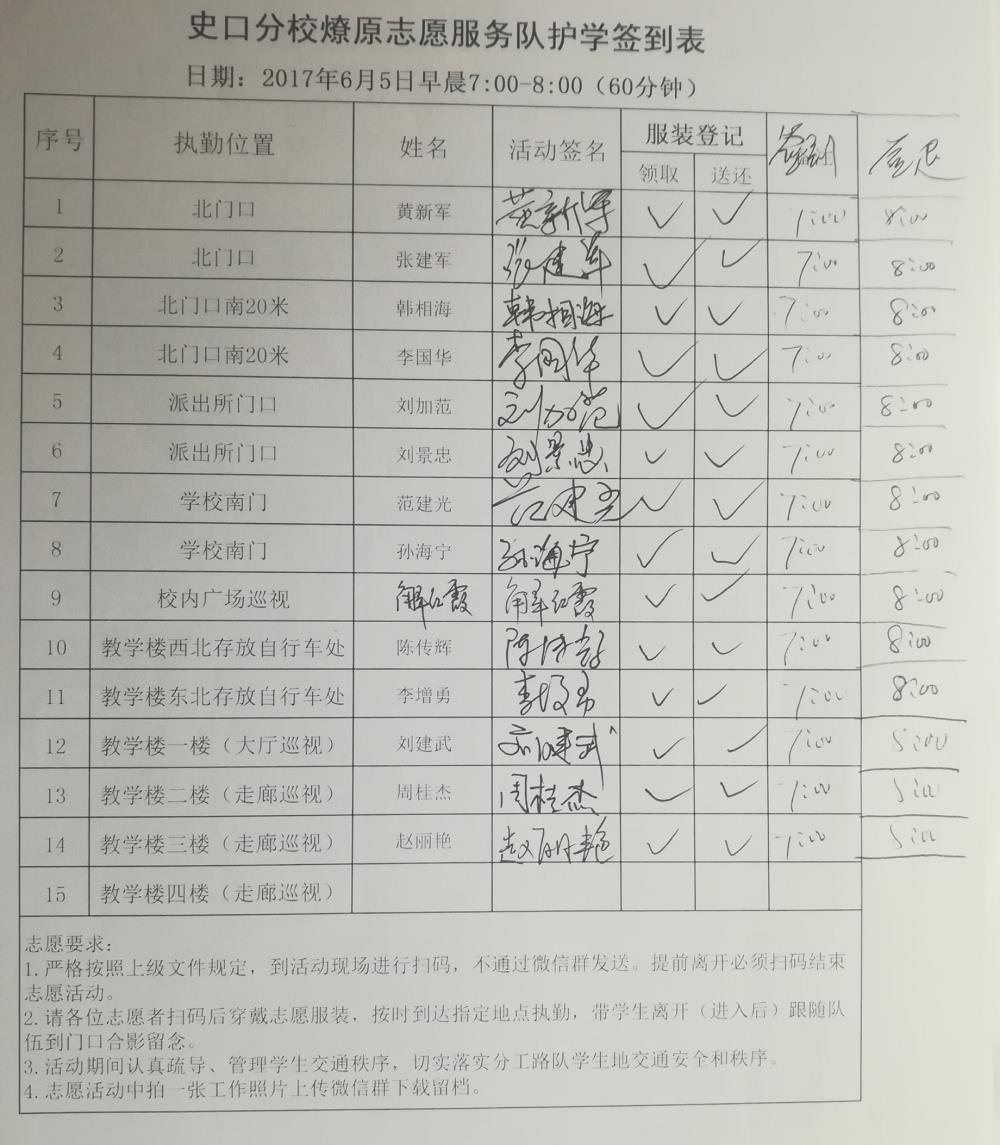 史口分校燎原志愿服务队护学签到表
日期：2017年6月5日早晨7:00-8:00（60分钟）
序号 执勤位置 姓名 活动签名 服装登记 签到 签退
领取 送还
1 北门口 黄新军 黄新军 ✓ ✓ 7:00 8:00
2 北门口 张建军 张建军 ✓ ✓ 7:00 8:00
3 北门口南20米 韩相海 韩相海 ✓ ✓ 7:00 8:00
4 北门口南20米 李国华 李国华 ✓ ✓ 7:00 8:00
5 派出所门口 刘加范 刘加范 ✓ ✓ 7:00 8:00
6 派出所门口 刘景忠 刘景忠 ✓ ✓ 7:00 8:00
7 学校南门 范建光 范建光 ✓ ✓ 7:00 8:00
8 学校南门 孙海宁 孙海宁 ✓ ✓ 7:00 8:00
9 校内广场巡视 解红霞 解红霞 ✓ ✓ 7:00 8:00
10 教学楼西北存放自行车处 陈传辉 陈传辉 ✓ ✓ 7:00 8:00
11 教学楼东北存放自行车处 李增勇 李增勇 ✓ ✓ 7:00 8:00
12 教学楼一楼（大厅巡视） 刘建武 刘建武 ✓ ✓ 7:00 8:00
13 教学楼二楼（走廊巡视） 周桂杰 周桂杰 ✓ ✓ 7:00 8:00
14 教学楼三楼（走廊巡视） 赵丽艳 赵丽艳 ✓ ✓ 7:00 8:00
15 教学楼四楼（走廊巡视）
志愿要求：
1.严格按照上级文件规定，到活动现场进行扫码，不通过微信群发送。提前离开必须扫码结束
志愿活动。
2.请各位志愿者扫码后穿戴志愿服装，按时到达指定地点执勤，带学生离开（进入后）跟随队
伍到门口合影留念。
3.活动期间认真疏导、管理学生交通秩序，切实落实分工路队学生地交通安全和秩序。
4.志愿活动中拍一张工作照片上传微信群下载留档。